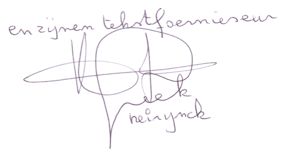 en zijnen tekstfoernieseur
Piek
neirynck